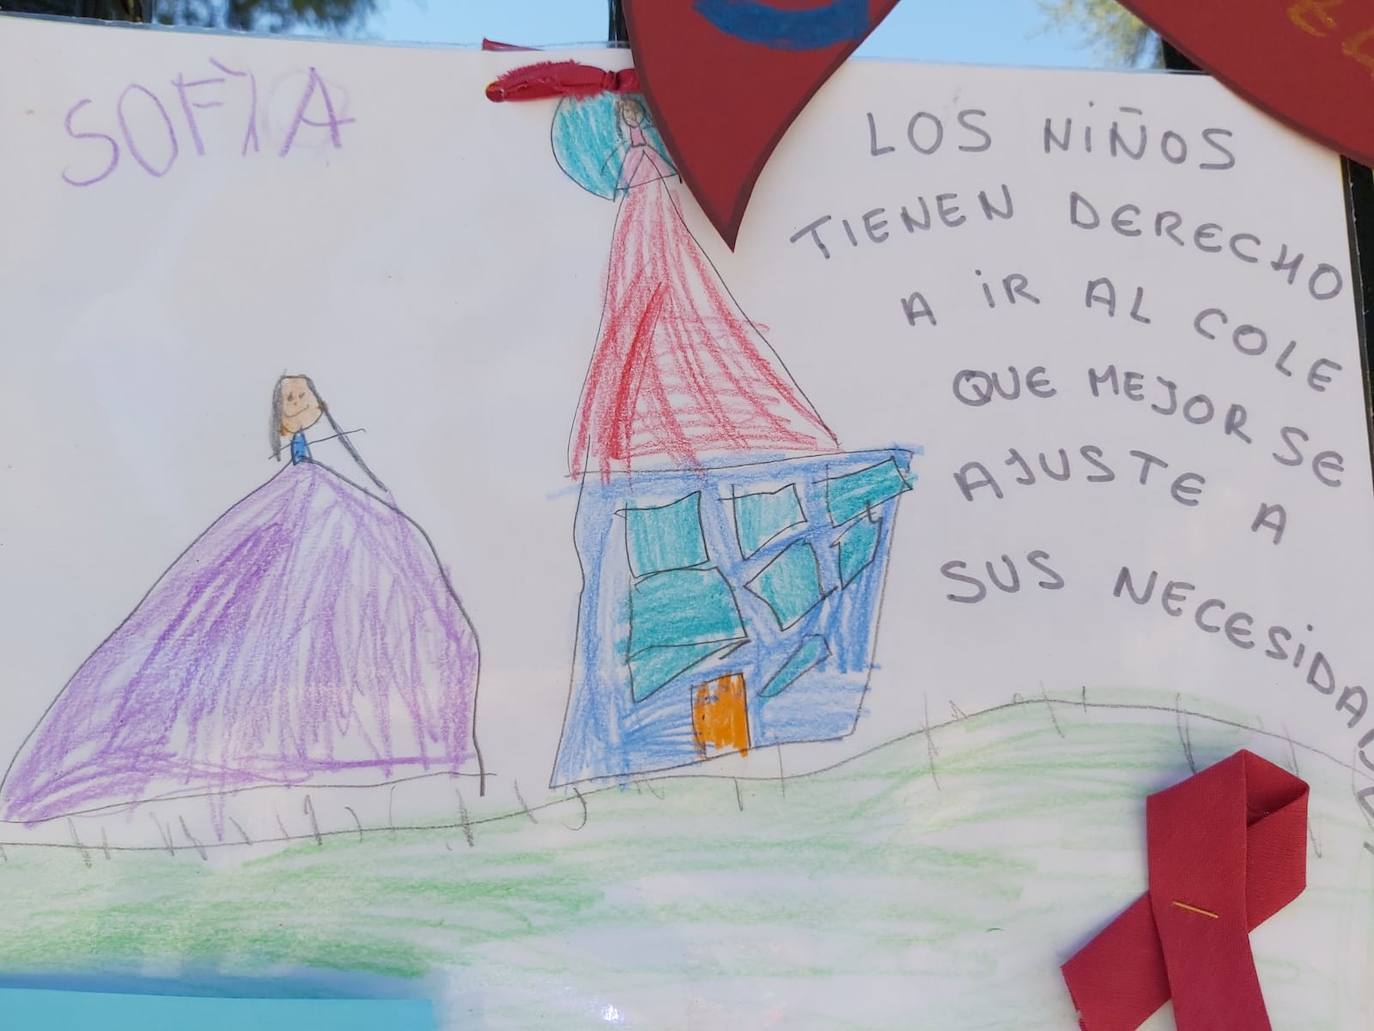 SOFÌA
LOS NIÑOS
TIENEN DERECHO
A IR AL COLE
QUE MEJOR SE
AJUSTE A
SUS NECESIDA